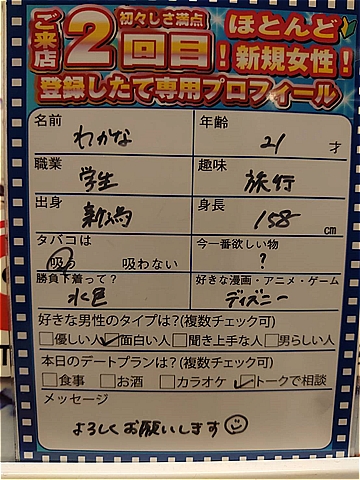 ご来店2回目!
初々しさ満点
ほとんど新規女性!
登録したて専用プロフィール
名前 わかな
年齢 21 才
職業 学生
趣味 旅行
出身 新潟
身長 158 cm
タバコは
吸う 吸わない
今一番欲しい物
?
勝負下着って?
水色
好きな漫画・アニメ・ゲーム
ディズニー
好きな男性のタイプは?(複数チェック可)
□優しい人 ☑面白い人 □聞き上手な人 □男らしい人
本日のデートプランは?(複数チェック可)
□食事 □お酒 □カラオケ ☑トークで相談
メッセージ
よろしくお願いします☺